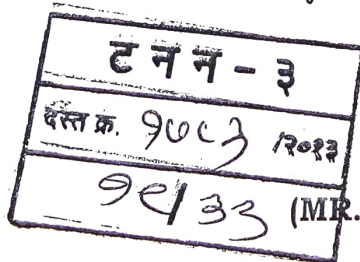 ट न न - ३
दस्त क्र. १७८३ /२०१३
१९/३३ (MR.